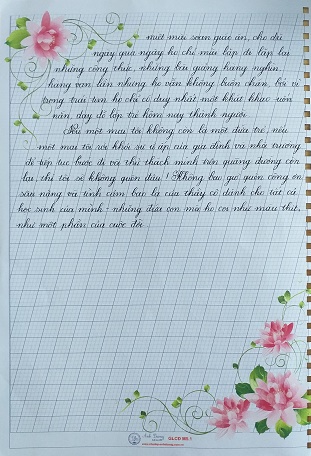 miệt mài soạn giáo án, cho dù
ngày qua ngày họ chỉ mãi lặp đi lặp lại
những công thức, những bài giảng hàng nghìn,
hàng vạn lần nhưng họ vẫn không buồn chán, bởi vì
trong trái tim họ chỉ có duy nhất một khát khao: uốn
nắn, dạy dỗ lớp trẻ hôm nay thành người.
Nếu một mai tôi không còn là một đứa trẻ, nếu
một mai tôi rời khỏi sự ủ ấp của gia đình và nhà trường
để tiếp tục bước đi và thử thách mình trên quãng đường còn
lại, thì tôi sẽ không quên đâu! Không bao giờ quên công ơn
sâu nặng và tình cảm bao la của thầy cô dành cho tất cả
học sinh của mình - những đứa con mà họ coi như máu thịt,
như một phần của cuộc đời.
GLCD NO.1